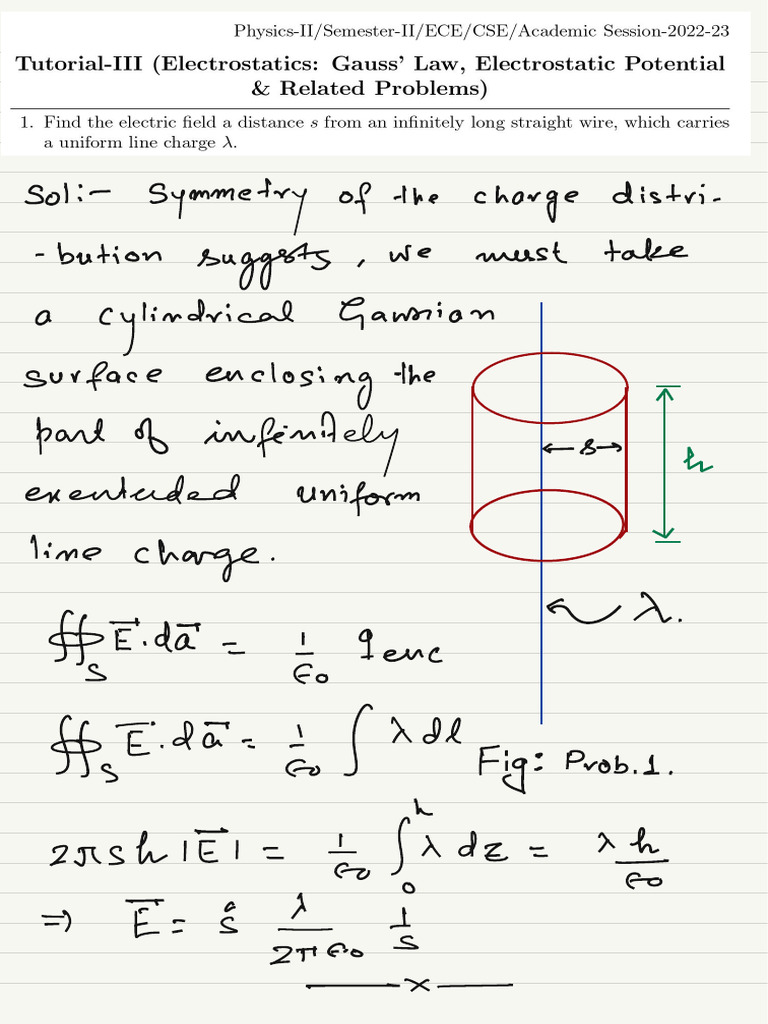 Physics-II/Semester-II/ECE/CSE/Academic Session-2022-23
Tutorial-III (Electrostatics: Gauss' Law, Electrostatic Potential
& Related Problems)
1. Find the electric field a distance s from an infinitely long straight wire, which carries
a uniform line charge λ.
Sol:- Symmetry of the charge distri-
-bution suggests, we must take
a cylindrical Gaussian
surface enclosing the
part of infinitely
extended uniform
line charge.
s
h
λ.
∯_S E⃗.da⃗ = 1/ϵ0 q enc
∯_S E⃗.da⃗ = 1/ϵ0 ∫ λ dl
Fig: Prob.1.
2πsh |E⃗| = 1/ϵ0 ∫_0^h λ dz = λh/ϵ0
⇒ E⃗ = ŝ λ/2πϵ0 1/s
—x—